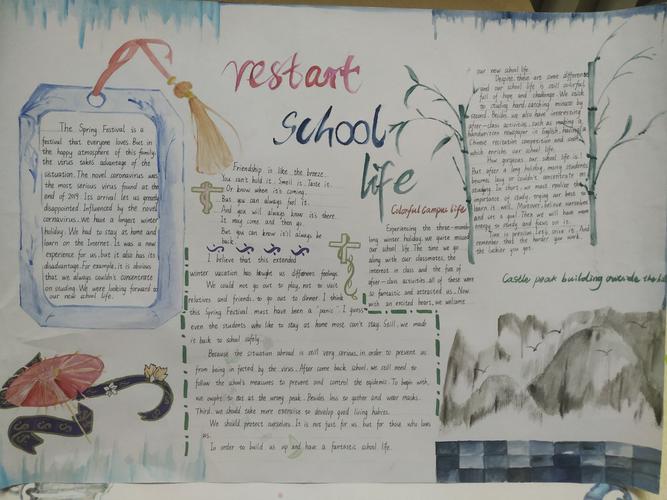 restart
school
life
The Spring Festival is a
festival that everyone loves. But in
the happy atmosphere of this family,
the virus takes advantage of the
situation. The novel coronavirus was
the most serious virus found at the
end of 2019. Its arrival let us
disappointed. Influenced by the novel
cornavirus. We have a longest winter
holiday. We had to stay at home and
learn on the Internet. It was a new
experience for us, but it also has its
disadvantage. For example, it is obvious
that we always couldn't concentrate
on studing. We were looking forward to
our new school life.
Friendship is like the breeze.
You can't hold it. Smell it. taste it.
Or know when it's coming.
But you can always feel it.
And you will always know it's there.
It may come and then go.
But you can know it'll always be
back.
I believe that this extended
winter vacation has bought us different feelings.
We could not go out to play, not to visit
relatives and friends, to go out to dinner. I think
this Spring Festival must have been a "panic". I guess
even the students who like to stay at home most can't stay. Still, we made
it back to school safely.
Because the situation abroad is still very serious, in order to prevent us
from being infected by the virus. After come back school, we still need to
follow the school's measures to prevent and control the epidemic. To begin with,
we ought to eat at the wrong peak. Besides less to gather and wear masks.
Third, we should take more exercise to develop good living habits.
We should protect ourselves. It is not just for us, but for those who love
us.
In order to build us up and have a fantastic school life.
Colorful Campus life
Experiencing the three-mon-
long winter holiday, we quite missed
our school life. The time we go
along with our classmates, the
interest in class and the fun of
after-class activities, all of these were
so fantastic and attracted us. Now
with an excited heart, we welcome
our new school life.
Despite there are some difference
and our school life is still colorful,
full of hope and challenge. We stick
to studing hard, catching minute by
second. Besides, we also have interesting
after-class activities, such as making a
handwritten newspaper in English, having a
Chinese recitation competition and so on
which enriches our school life.
How gorgeous our school life is!
But after a long holiday, many students
become lazy or couldn't concentrate on
studing. In short, we must realize the
importance of study, trying our best to
learn it well. Moreover, believe ourselves
and set a goal. Then we will have more
energy to study and focus on it.
Time is precious. Let's seize it. And
remember that the harder you work,
the luckier you get.
Castle peak building outside the